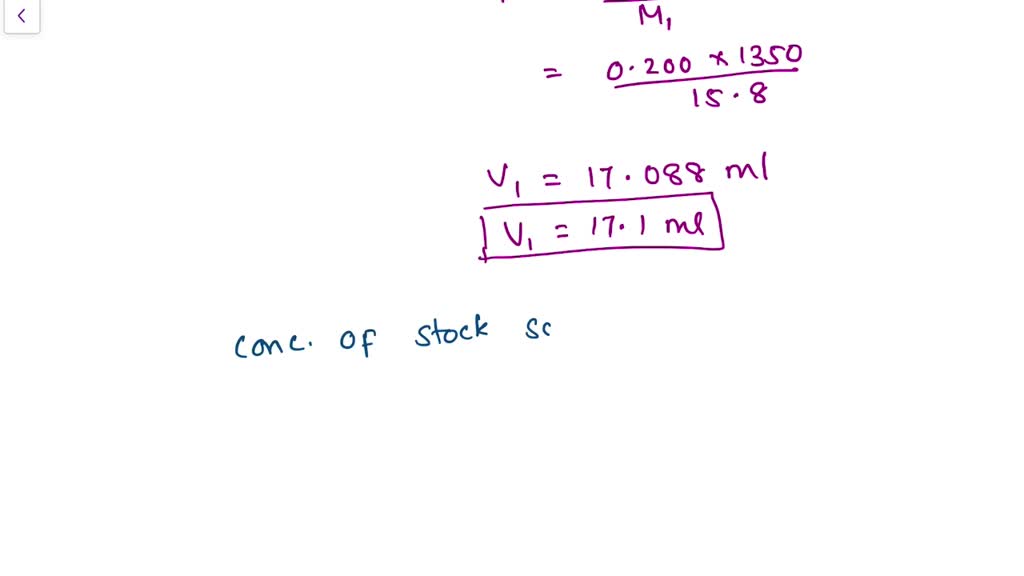 M₁
= 0.200 × 1350
15.8
V₁ = 17.088 ml
V₁ = 17.1 ml
conc. of stock so